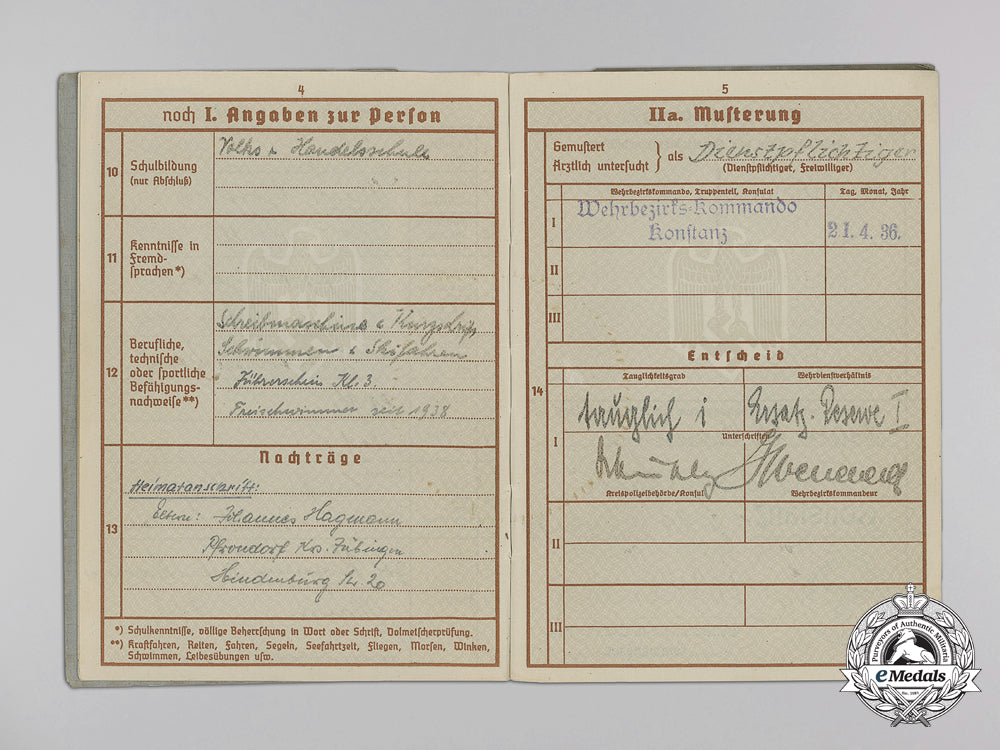 4
noch I. Angaben zur Person
10
Schulbildung
(nur Abschluß)
Volks u Handelsschule
11
Kenntnisse in
Fremd-
sprachen*)
12
Berufliche,
technische
oder sportliche
Befähigungs-
nachweise**)
Schreibmaschine u Kurzschrift
Schwimmen u Skifahren
Führerschein Kl. 3.
Freischwimmer seit 1938
Nachträge
13
Heimatanschrift:
Eltern: Johannes Hagmann
Pfrondorf Krs. Tübingen
Hindenburg Str. 20
*) Schulkenntnisse, völlige Beherrschung in Wort oder Schrift, Dolmetscherprüfung.
**) Kraftfahren, Reiten, Fahren, Segeln, Seefahrtzeit, Fliegen, Morsen, Winken,
Schwimmen, Leibesübungen usw.
5
IIa. Musterung
Gemustert
Ärztlich untersucht } als Dienstpflichtiger
(Dienstpflichtiger, Freiwilliger)
Wehrbezirkskommando, Truppenteil, Konsulat
Tag, Monat, Jahr
I
Wehrbezirks-Kommando
Konstanz
21. 4. 36.
II
III
Entscheid
14
Tauglichkeitsgrad
Wehrdienstverhältnis
I
tauglich 1
Ersatz. Reserve I
Unterschriften
Kreispolizeibehörde/Konsul
Wehrbezirkskommandeur
II
III
Purveyors of Authentic Militaria
eMedals